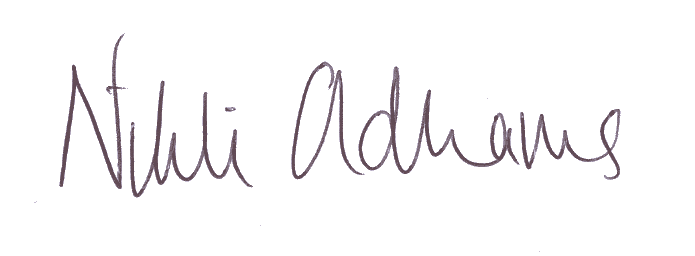 Nikki Adhams